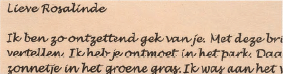 Lieve Rosalinde
Ik ben zo ontzettend gek van je. Met deze bri
vertellen. Ik heb je ontmoet in het park. Daa
zonnetje in het groene gras. Ik was aan het v